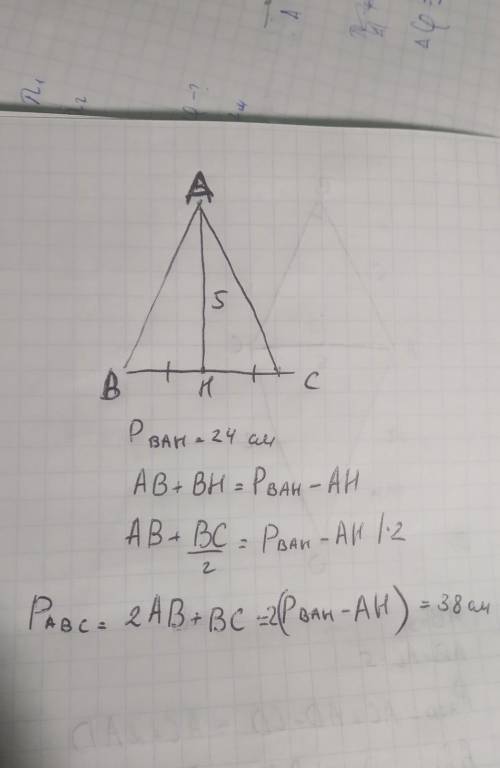 A
5
B H C
P_BAH = 24 см
AB + BH = P_BAH - AH
AB + BC/2 = P_BAH - AH |·2
P_ABC = 2AB + BC = 2(P_BAH - AH) = 38 см